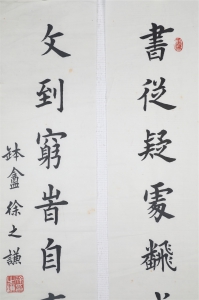 書從疑處飜
文到窮旹自
缽盦徐之謙